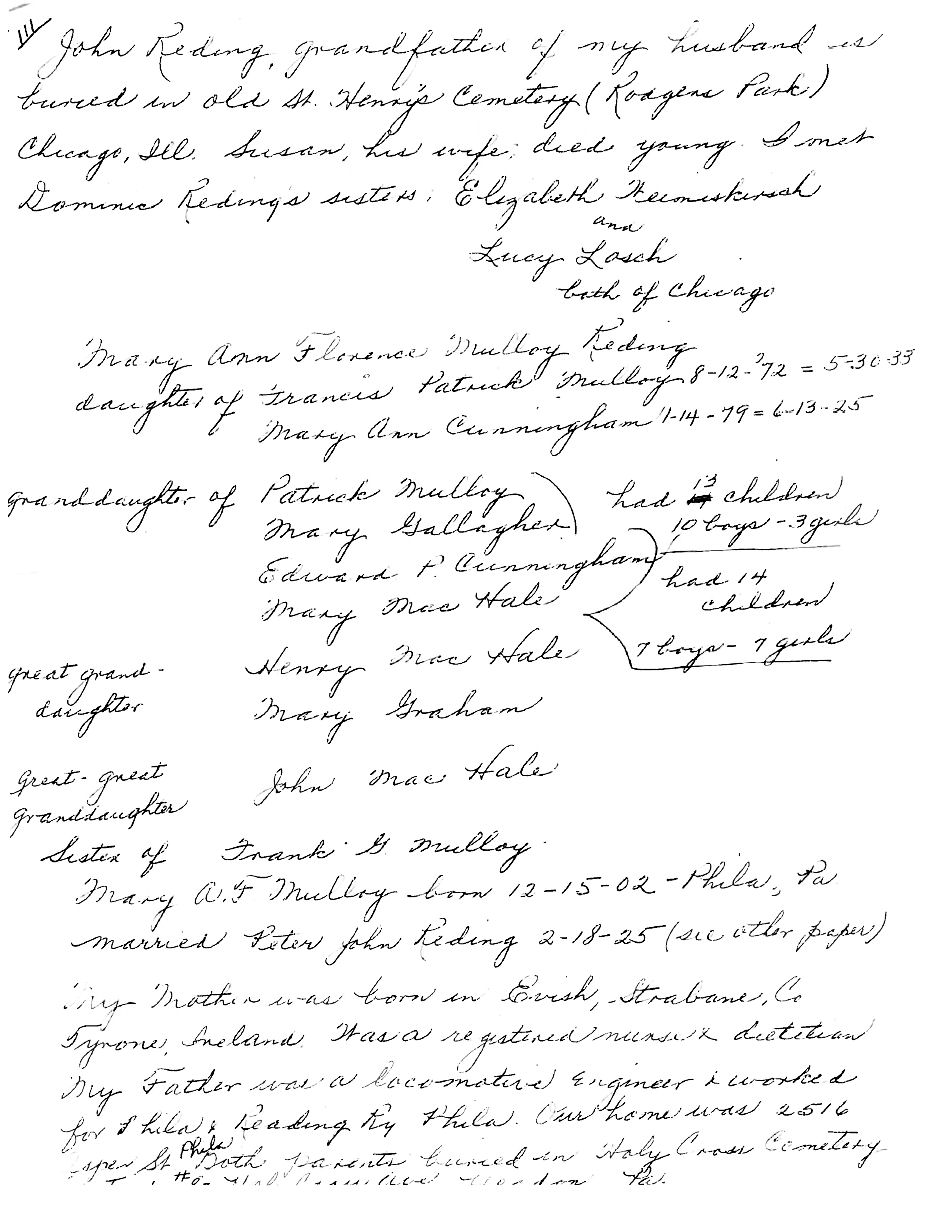 III
John Reding, grandfather of my husband is
buried in old St. Henry's Cemetery (Rodgers Park)
Chicago, Ill. Susan, his wife, died young. I met
Dominic Reding's sisters, Elizabeth
and
Lucy Losch
both of Chicago
Mary Ann Florence Mulloy Reding
daughter of Francis Patrick Mulloy 8-12-'72 = 5-30-33
Mary Ann Cunningham 1-14-79 = 6-13-25
granddaughter of Patrick Mulloy had 13 children
Mary Gallagher 10 boys - 3 girls
Edward P. Cunningham had 14
Mary Mac Hale children
7 boys - 7 girls
great grand- Henry Mac Hale
daughter Mary Graham
Great-great John Mac Hale
Granddaughter
Sister of Frank G. Mulloy
Mary A.F. Mulloy born 12-15-02 - Phila., Pa
married Peter John Reding 2-18-25 (see other paper)
My Mother was born in Evish, Strabane, Co
Tyrone, Ireland. Was a registered nurse & dietetian
My Father was a locomotive Engineer & worked
for Phila & Reading Ry Phila. Our home was 2516
St Phila Both parents buried in Holy Cross Cemetery
Pa.